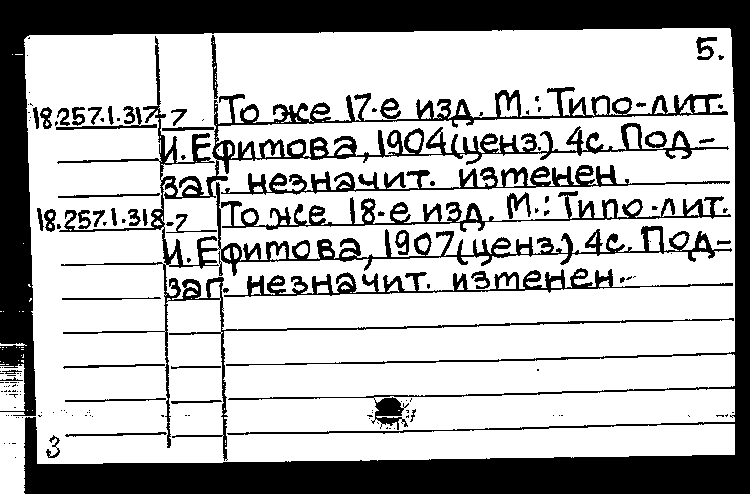 5.
18.257.1.317-7 То же 17-е изд. М.: Типо-лит.
И. Ефимова, 1904 (ценз.) 4с. Под-
заг. незначит. изменен.
18.257.1.318-7 То же. 18-е изд. М.: Типо-лит.
И. Ефимова, 1907 (ценз.). 4с. Под-
заг. незначит. изменен.-
3